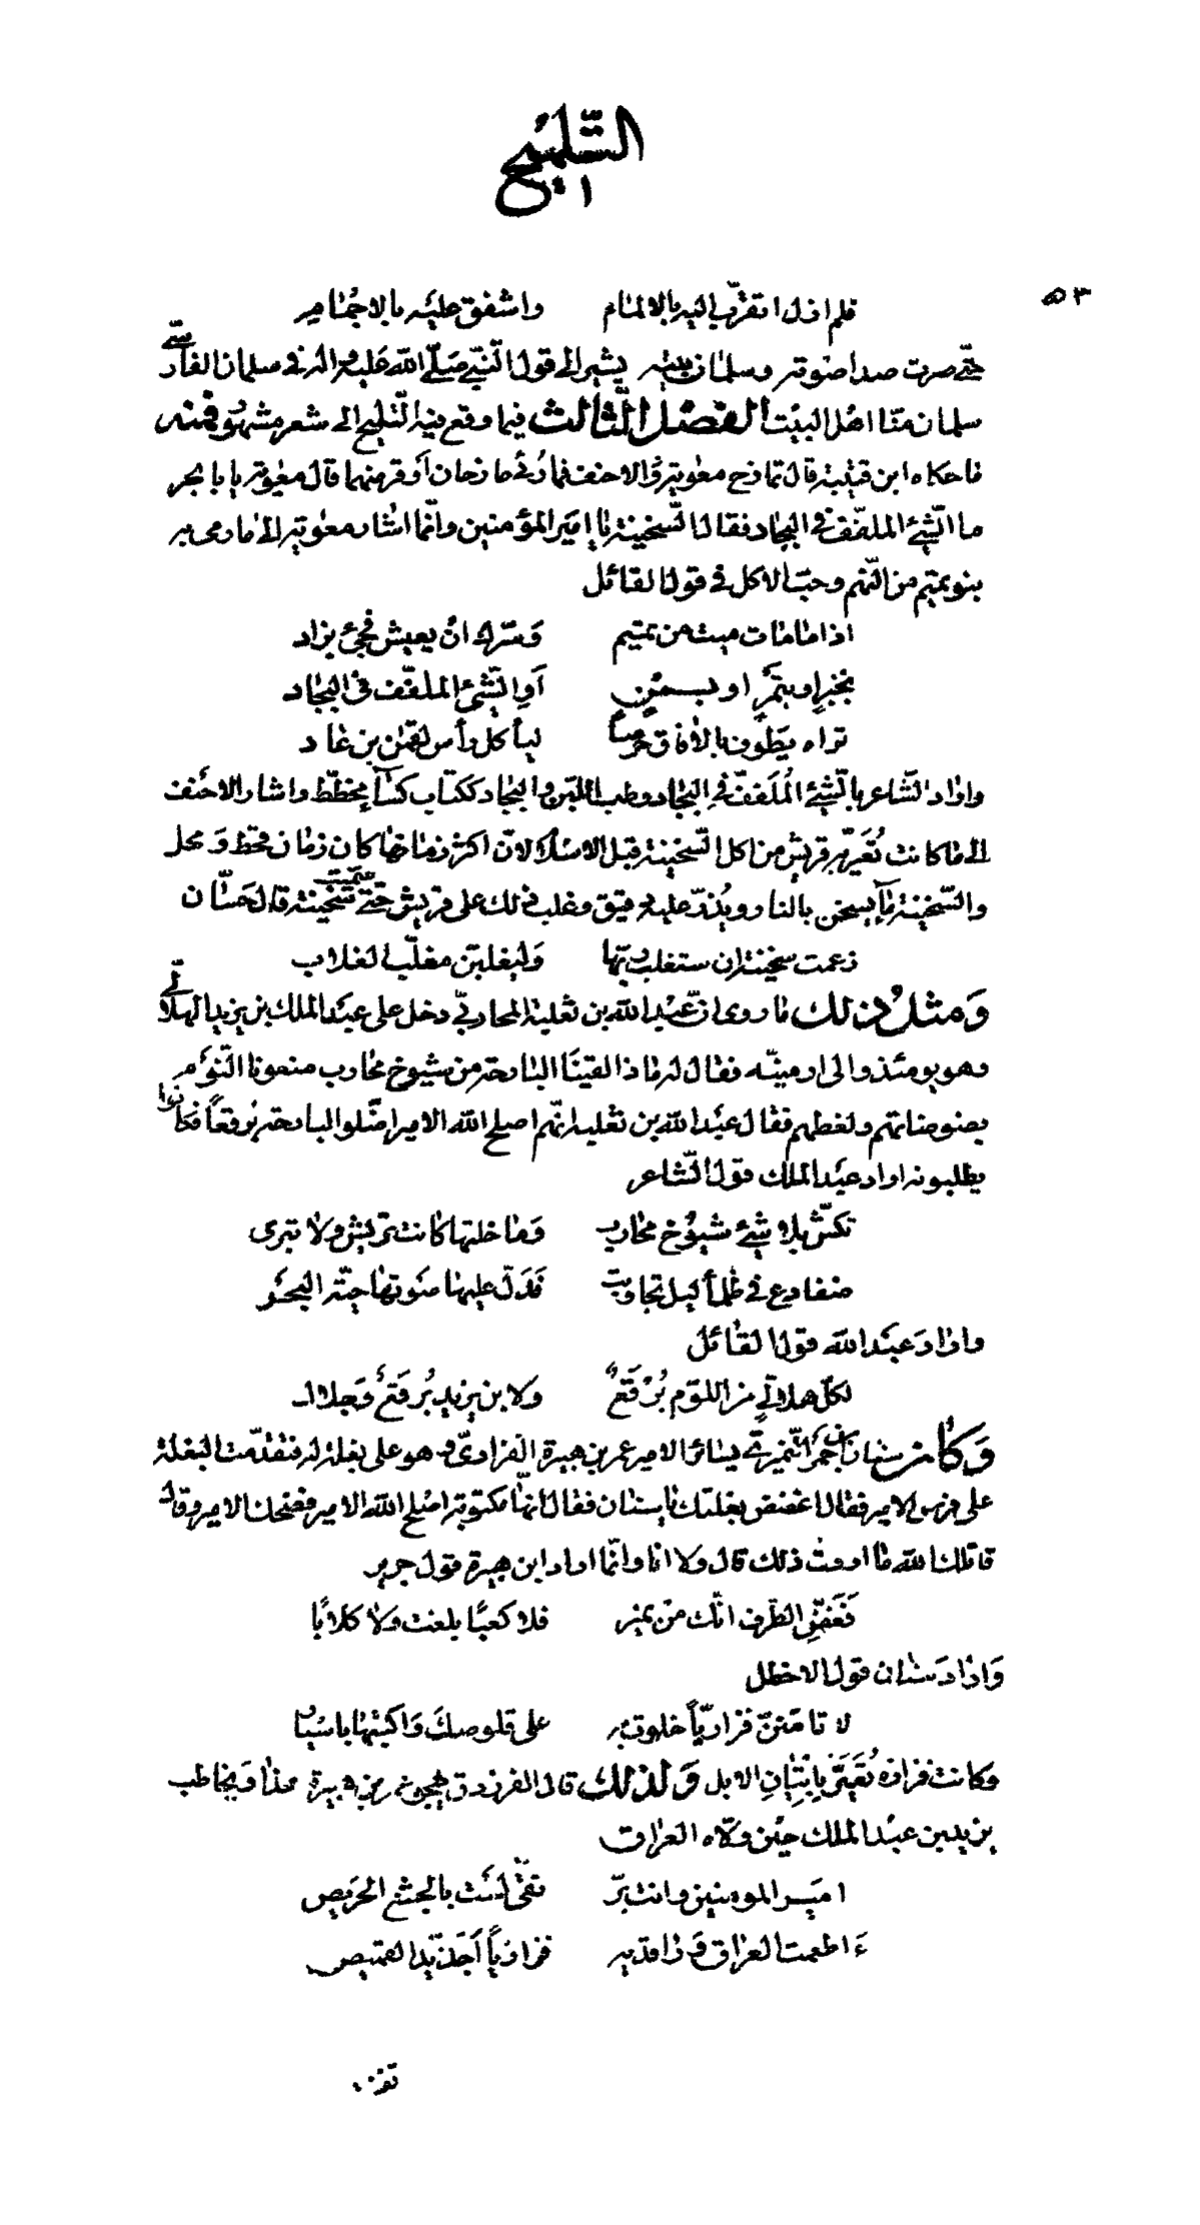 التلميح
٥٣
فلم ازل اتقرّب اليه بالالمام واشفق عليه بالاجمام
حتّى صرت صدا صوته وسلمان بيته يشير الى قول النّبىّ صلّى الله عليه واله فى سلمان الفارسىّ
سلمان منّا اهل البيت الفصل الثّالث فيما وقع فيه التّلميح الى شعر مشهور فمنه
ما حكاه ابن قتيبة قال تمازح معوية والاحنف فما رُئى مازحان اوقر منهما قال معوية يا با بحر
ما الشّىء الملفّف فى البجاد فقال السّخينة يا امير المؤمنين وانّما اشار معوية الى ما رمى به
بنو تميم من النّهم وحبّ الاكل فى قول القائل
اذا ما مات ميت من تميم وسرّك ان يعيش فجئ بزاد
بخبز او بتمر او بسمن او الشّىء الملفّف فى البجاد
تراه يطوف بالافاق حرصاً ليأكل رأس لقمن بن عاد
واراد الشّاعر بالشّىء المُلَفَّف فى البجاد وطب اللبن والبجاد ككتاب كساء مخطّط واشار الاحنف
الى ما كانت تُعَيَّر به قريش من اكل السّخينة قبل الاسلام لانّ اكثر زمانها كان زمان قحط ومحل
والسّخينة ماء يسخن بالنار ويُذرّ عليه دقيق وغلب ذلك على قريش حتّى سُمّيت سخينة قال حسّان
زعمت سخينة ان ستغلب ربّها وليغلبنّ مغلّب الغلاب
ومثل ذلك ما روى انّ عبد الله بن ثعلبة المحاربىّ دخل على عبد الملك بن يزيد الهلالىّ
وهو يومئذ والى ارمينيّه فقال له ماذا لقينا البارحة من شيوخ محارب منعونا النّوم
بضوضائهم ولغطهم فقال عبد الله بن ثعلبة انّهم اصلح الله الامير اضّلوا البارحة برقعاً فكانوا
يطلبونه اراد عبد الملك قول الشّاعر
تكشّ بلا شىء شيوخ محارب وما خلتها كانت تريش ولا تبرى
ضفادع فى ظلماً ليل تجاوبت فدلّ عليها صوتها حيّة البحر
واراد عبد الله قول القائل
لكلّ هلالىّ من اللوم بُرْقَعٌ ولابن يزيد بُرقعٌ وجلال
وكان سنان بن احمر النّميرىّ يساير الامير عمر بن هبيرة الفزارىّ وهو على بغلة له فتقدّمت البغلة
على فرس الامير فقال اغضض بغلتك يا سنان فقال انّها مكتوبة اصلح الله الامير فضحك الامير وقال
قاتلك الله ما اردت ذلك قال ولا انا وانّما اراد ابن هبيرة قول جرير
فغضّ الطّرف انّك من نمير فلا كعبًا بلغت ولا كلابًا
واراد سنان قول الاخطل
لا تامننّ فزاريّاً خلوت به على قلوصك واكتبها باسيار
وكانت فزارة تُعَيَّر باتيان الابل ولذلك قال الفرزدق يهجو عمر بن هبيرة هذا ويخاطب
يزيد بن عبد الملك حين ولّاه العراق
امير المومنين وانت برّ تقىّ لست بالجشع الحريص
ءاطعمت العراق ورافديه فزاريّاً احذّ يد القميص